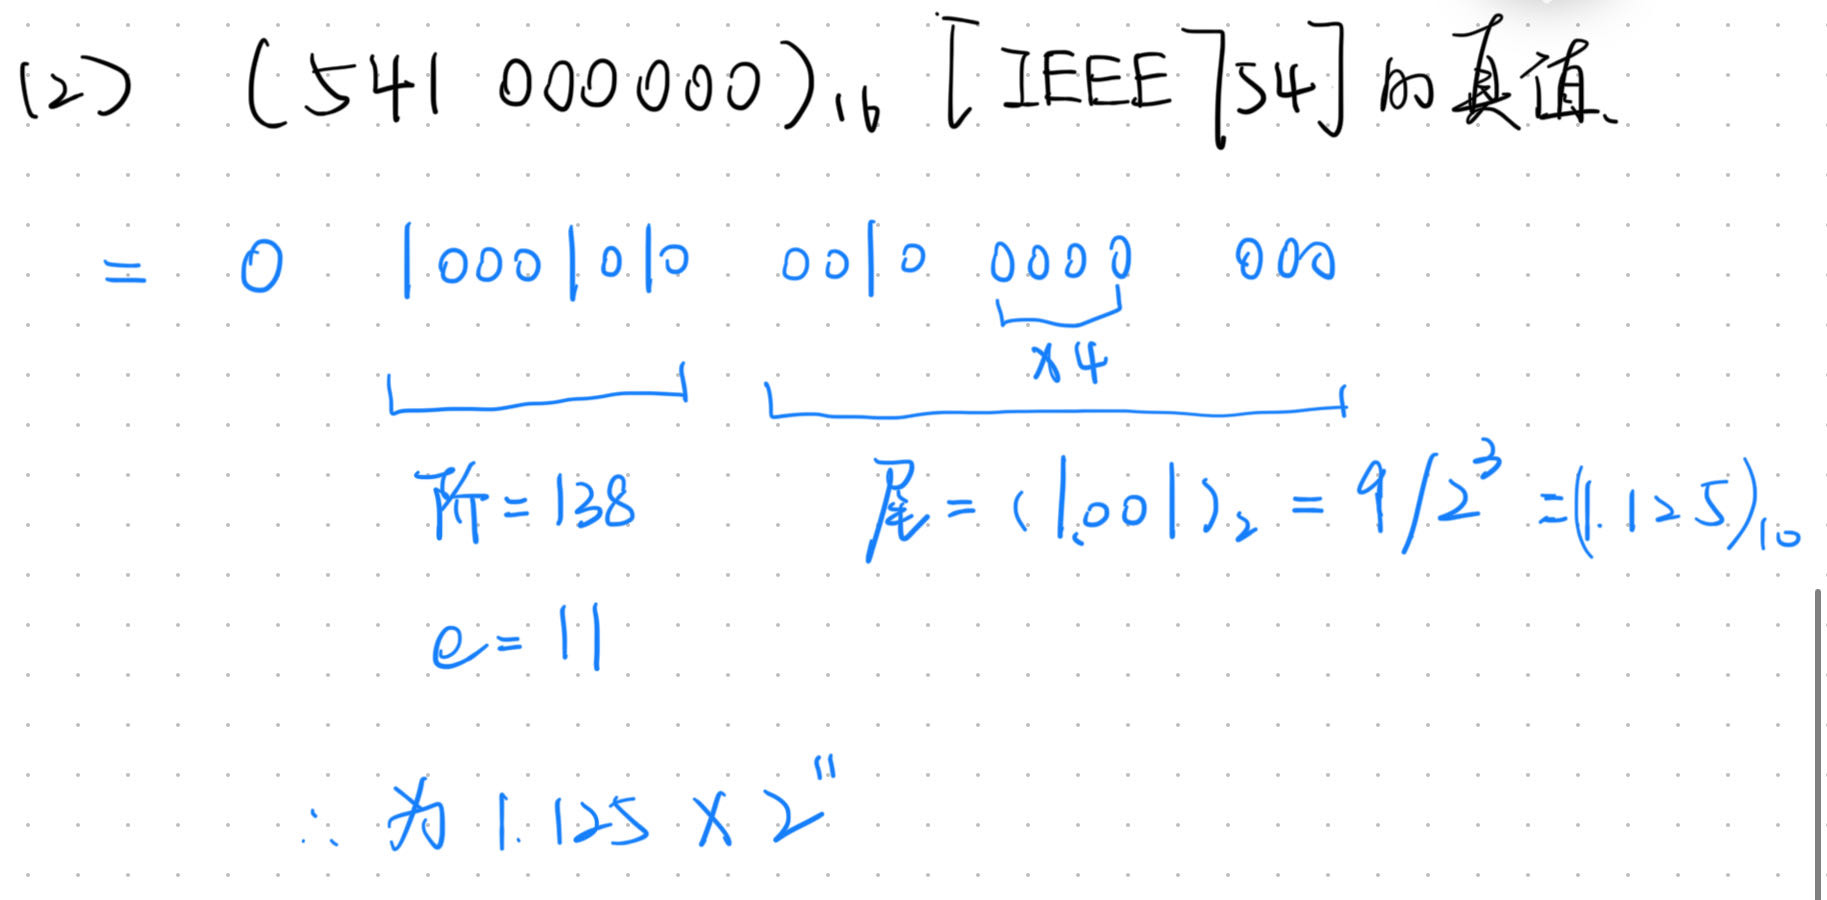 (2) (541 000000)₁₆ [IEEE754]的真值.
= 0 10001010 0010 0000 000
×4
阶=138 尾=(1.001)₂ = 9/2³ =(1.125)₁₀
e=11
∴ 为 1.125 × 2¹¹